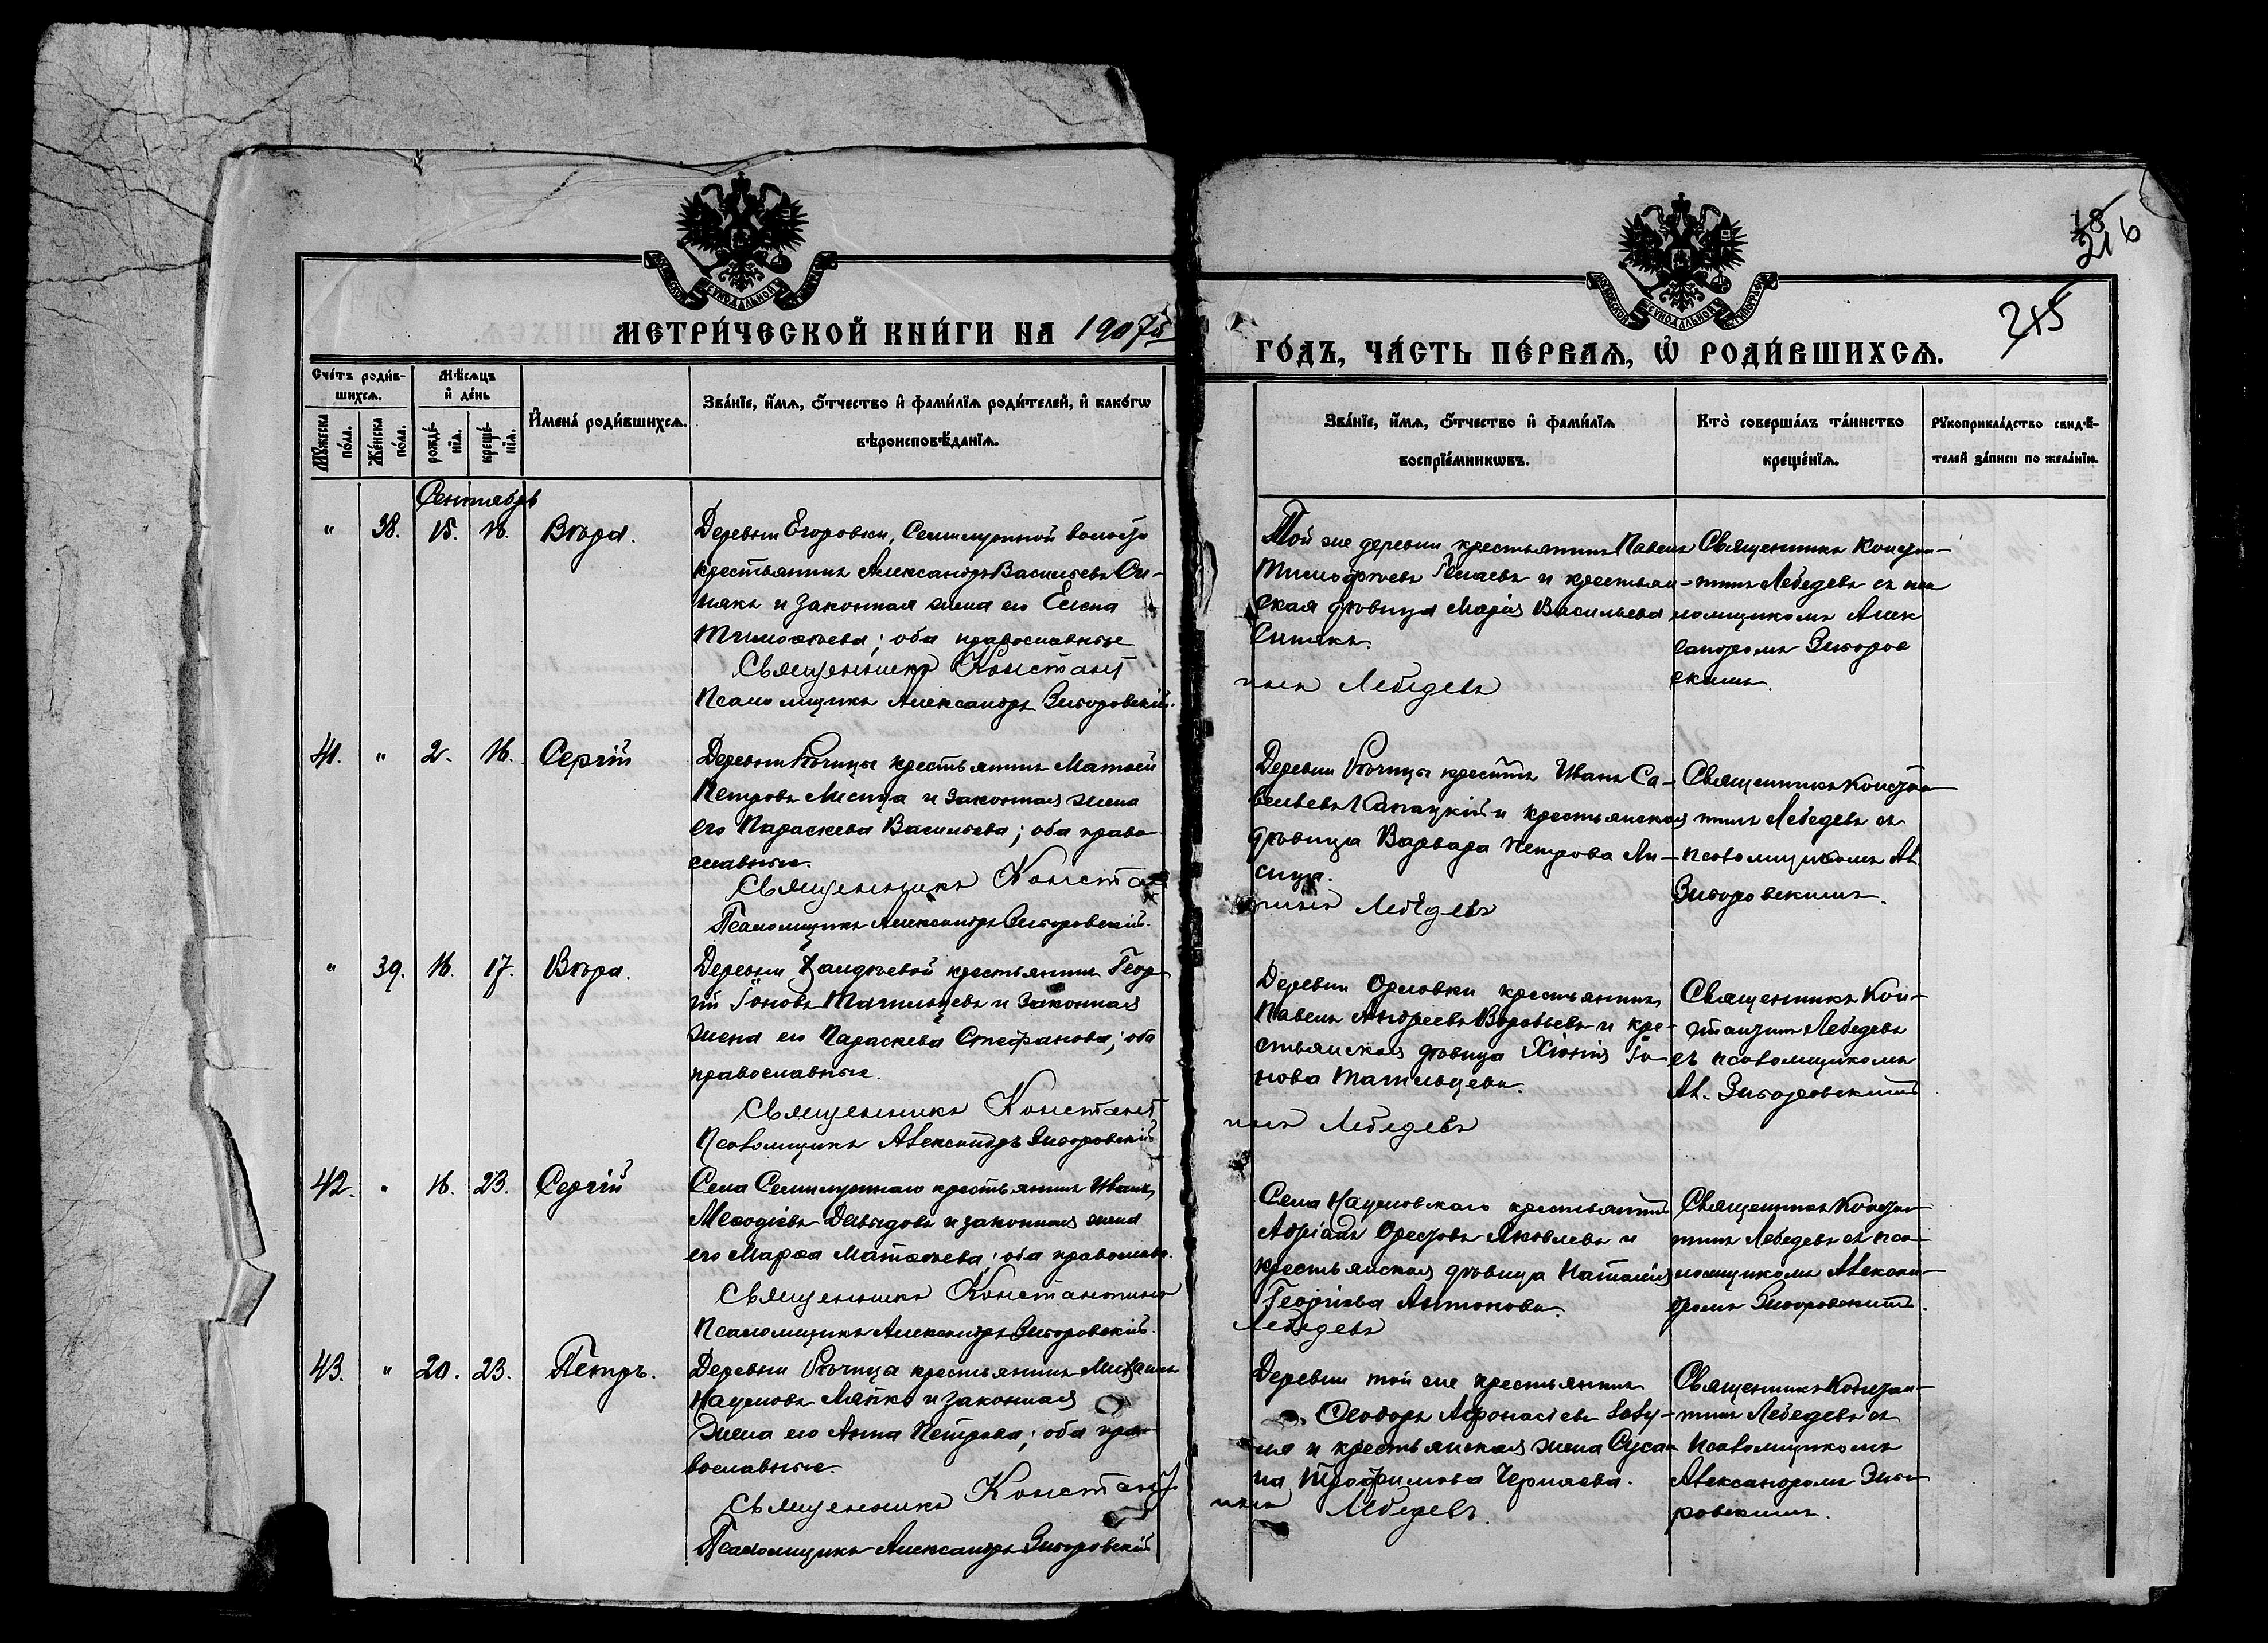 18
21 6
215
МЕТРИ́ЧЕСКОЙ КНИ́ГИ НА 1907й
ГО́ДЪ, ЧА́СТЬ ПЕ́РВАѦ, Ѡ РОДИ́ВШИХСѦ.
Сче́тъ роди́в-
шихсѧ.
Мѣ́сѧцъ
и҆ де́нь
Мꙋ́жеска
по́ла.
Же́нска
по́ла.
рожде́-
нїѧ.
креще́-
нїѧ.
И҆мена̀ роди́вшихсѧ.
Зва́нїе, и҆́мѧ, ѻ҆́тчество и҆ фами́лїѧ роди́телей, и҆ како́гѡ
вѣроисповѣ́данїѧ.
Зва́нїе, и҆́мѧ, ѻ҆́тчество и҆ фами́лїѧ
воспрїе́мникѡвъ.
Кто̀ соверша́лъ та́инство
креще́нїѧ.
Рꙋкоприкла́дство свидѣ́-
телей за́писи по жела́нїю.
Сентябрь
" 38. 15. 16. Вѣра.
Деревни Егоровки, Семилужной волости
крестьянинъ Александръ Васильевъ Си-
някъ и законная жена его Елена
Тимоѳеева; оба православные
Священникъ Констант
Псаломщикъ Александръ Зиворовскій.
Той же деревни крестьянинъ Павелъ
Тимофеевъ и крестьян-
ская дѣвица Марія Васильева
Синякъ.
инъ Лебедевъ
Священникъ Констан-
тинъ Лебедевъ съ пса
ломщикомъ Алек
сандромъ Зиворов
скимъ.
41. " 2. 16. Сергій
Деревни крестьянинъ Матѳей
Петровъ Лисица и законная жена
его Параскева Васильева; оба право
славные.
Священникъ Конста
Псаломщикъ Александръ Зиворовскій.
Деревни крест-нъ Иванъ Са-
вельевъ и крестьянская
дѣвица Варвара Петрова Ли-
сица.
тинъ Лебедевъ
Священникъ Констан
тинъ Лебедевъ съ
псаломщикомъ Ал.
Зиворовскимъ.
" 39. 16. 17. Вѣра.
Деревни крестьянинъ Геор-
гій Іоновъ Тагильцевъ и законная
жена его Параскева Стефанова; оба
православные.
Священникъ Констант
Псаломщикъ Александръ Зиворовскій
Деревни Орловки крестьянинъ
Павелъ Андреевъ Воробьевъ и кре-
стьянская дѣвица Хіонія Іо-
нова Тагильцева.
инъ Лебедевъ
Священникъ Кон-
стантинъ Лебедевъ
съ псаломщикомъ
Ал. Зиворовскимъ
42. " 16. 23. Сергій
Села Семилужнаго крестьянинъ Иванъ
Меѳодіевъ Давыдовъ и законная жена
его Марѳа Матѳеева; оба православн.
Священникъ Константинъ
Псаломщикъ Александръ Зиворовскій.
Села Наумовскаго крестьянинъ
Адріанъ Орестовъ Яковлевъ и
крестьянская дѣвица Наталія
Георгіева Антонова.
Лебедевъ
Священникъ Констан
тинъ Лебедевъ съ пса
ломщикомъ Алексан-
дромъ Зиворовскимъ.
43. " 20. 23. Петръ.
Деревни крестьянинъ Михаилъ
Наумовъ Ляпко и законная
жена его Анна Петрова; оба пра-
вославные.
Священникъ Констант
Псаломщикъ Александръ Зиворовскій
Деревни той же крестьянинъ
Ѳеодоръ Аѳонасіевъ
и крестьянская жена Суса
на Трофимова Черняева.
инъ Лебедевъ.
Священникъ Констан-
тинъ Лебедевъ съ
псаломщикомъ
Александромъ Зиво-
ровскимъ.